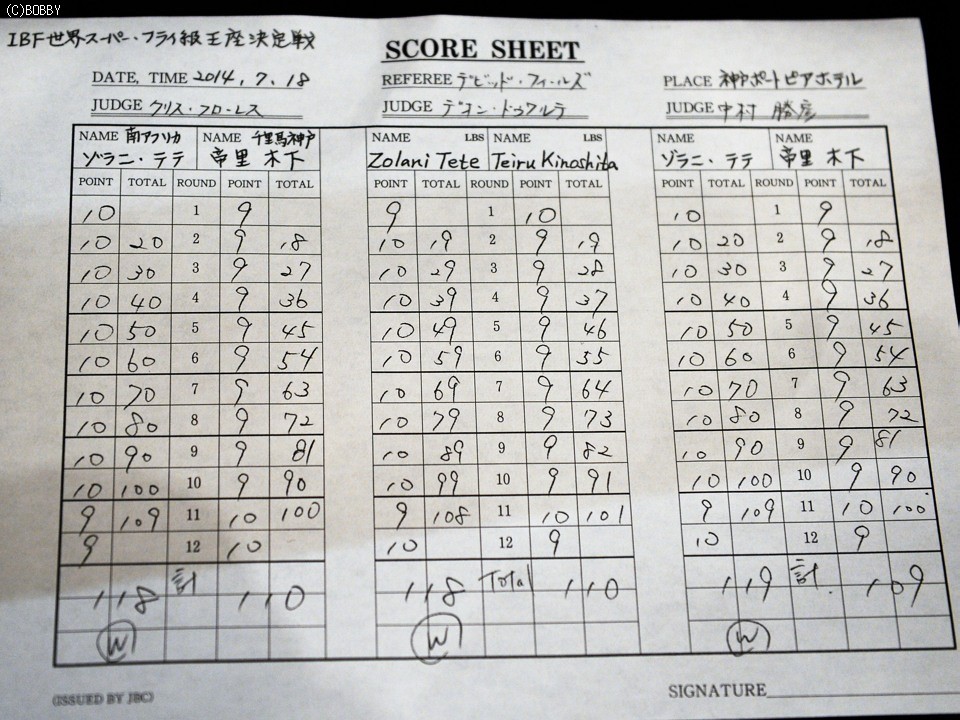 (C)BOBBY
IBF世界スーパー・フライ級王座決定戦
SCORE SHEET
DATE, TIME 2014, 7. 18 REFEREE デビッド・フィールズ PLACE 神戸ポートピアホテル
JUDGE クリス・フローレス JUDGE デオン・ドゥアルテ JUDGE 中村 勝彦
NAME 南アフリカ NAME 千里馬神戸 NAME LBS NAME LBS NAME NAME
ゾラニ・テテ 帝里 木下 Zolani Tete Teiru Kinoshita ゾラニ・テテ 帝里 木下
POINT TOTAL ROUND POINT TOTAL POINT TOTAL ROUND POINT TOTAL POINT TOTAL ROUND POINT TOTAL
10 1 9 9 1 10 10 1 9
10 20 2 9 18 10 19 2 9 19 10 20 2 9 18
10 30 3 9 27 10 29 3 9 28 10 30 3 9 27
10 40 4 9 36 10 39 4 9 37 10 40 4 9 36
10 50 5 9 45 10 49 5 9 46 10 50 5 9 45
10 60 6 9 54 10 59 6 9 55 10 60 6 9 54
10 70 7 9 63 10 69 7 9 64 10 70 7 9 63
10 80 8 9 72 10 79 8 9 73 10 80 8 9 72
10 90 9 9 81 10 89 9 9 82 10 90 9 9 81
10 100 10 9 90 10 99 10 9 91 10 100 10 9 90
9 109 11 10 100 9 108 11 10 101 9 109 11 10 100
9 12 10 10 12 9 10 12 9
118 計 110 118 Total 110 119 計 109
W W W
(ISSUED BY JBC) SIGNATURE